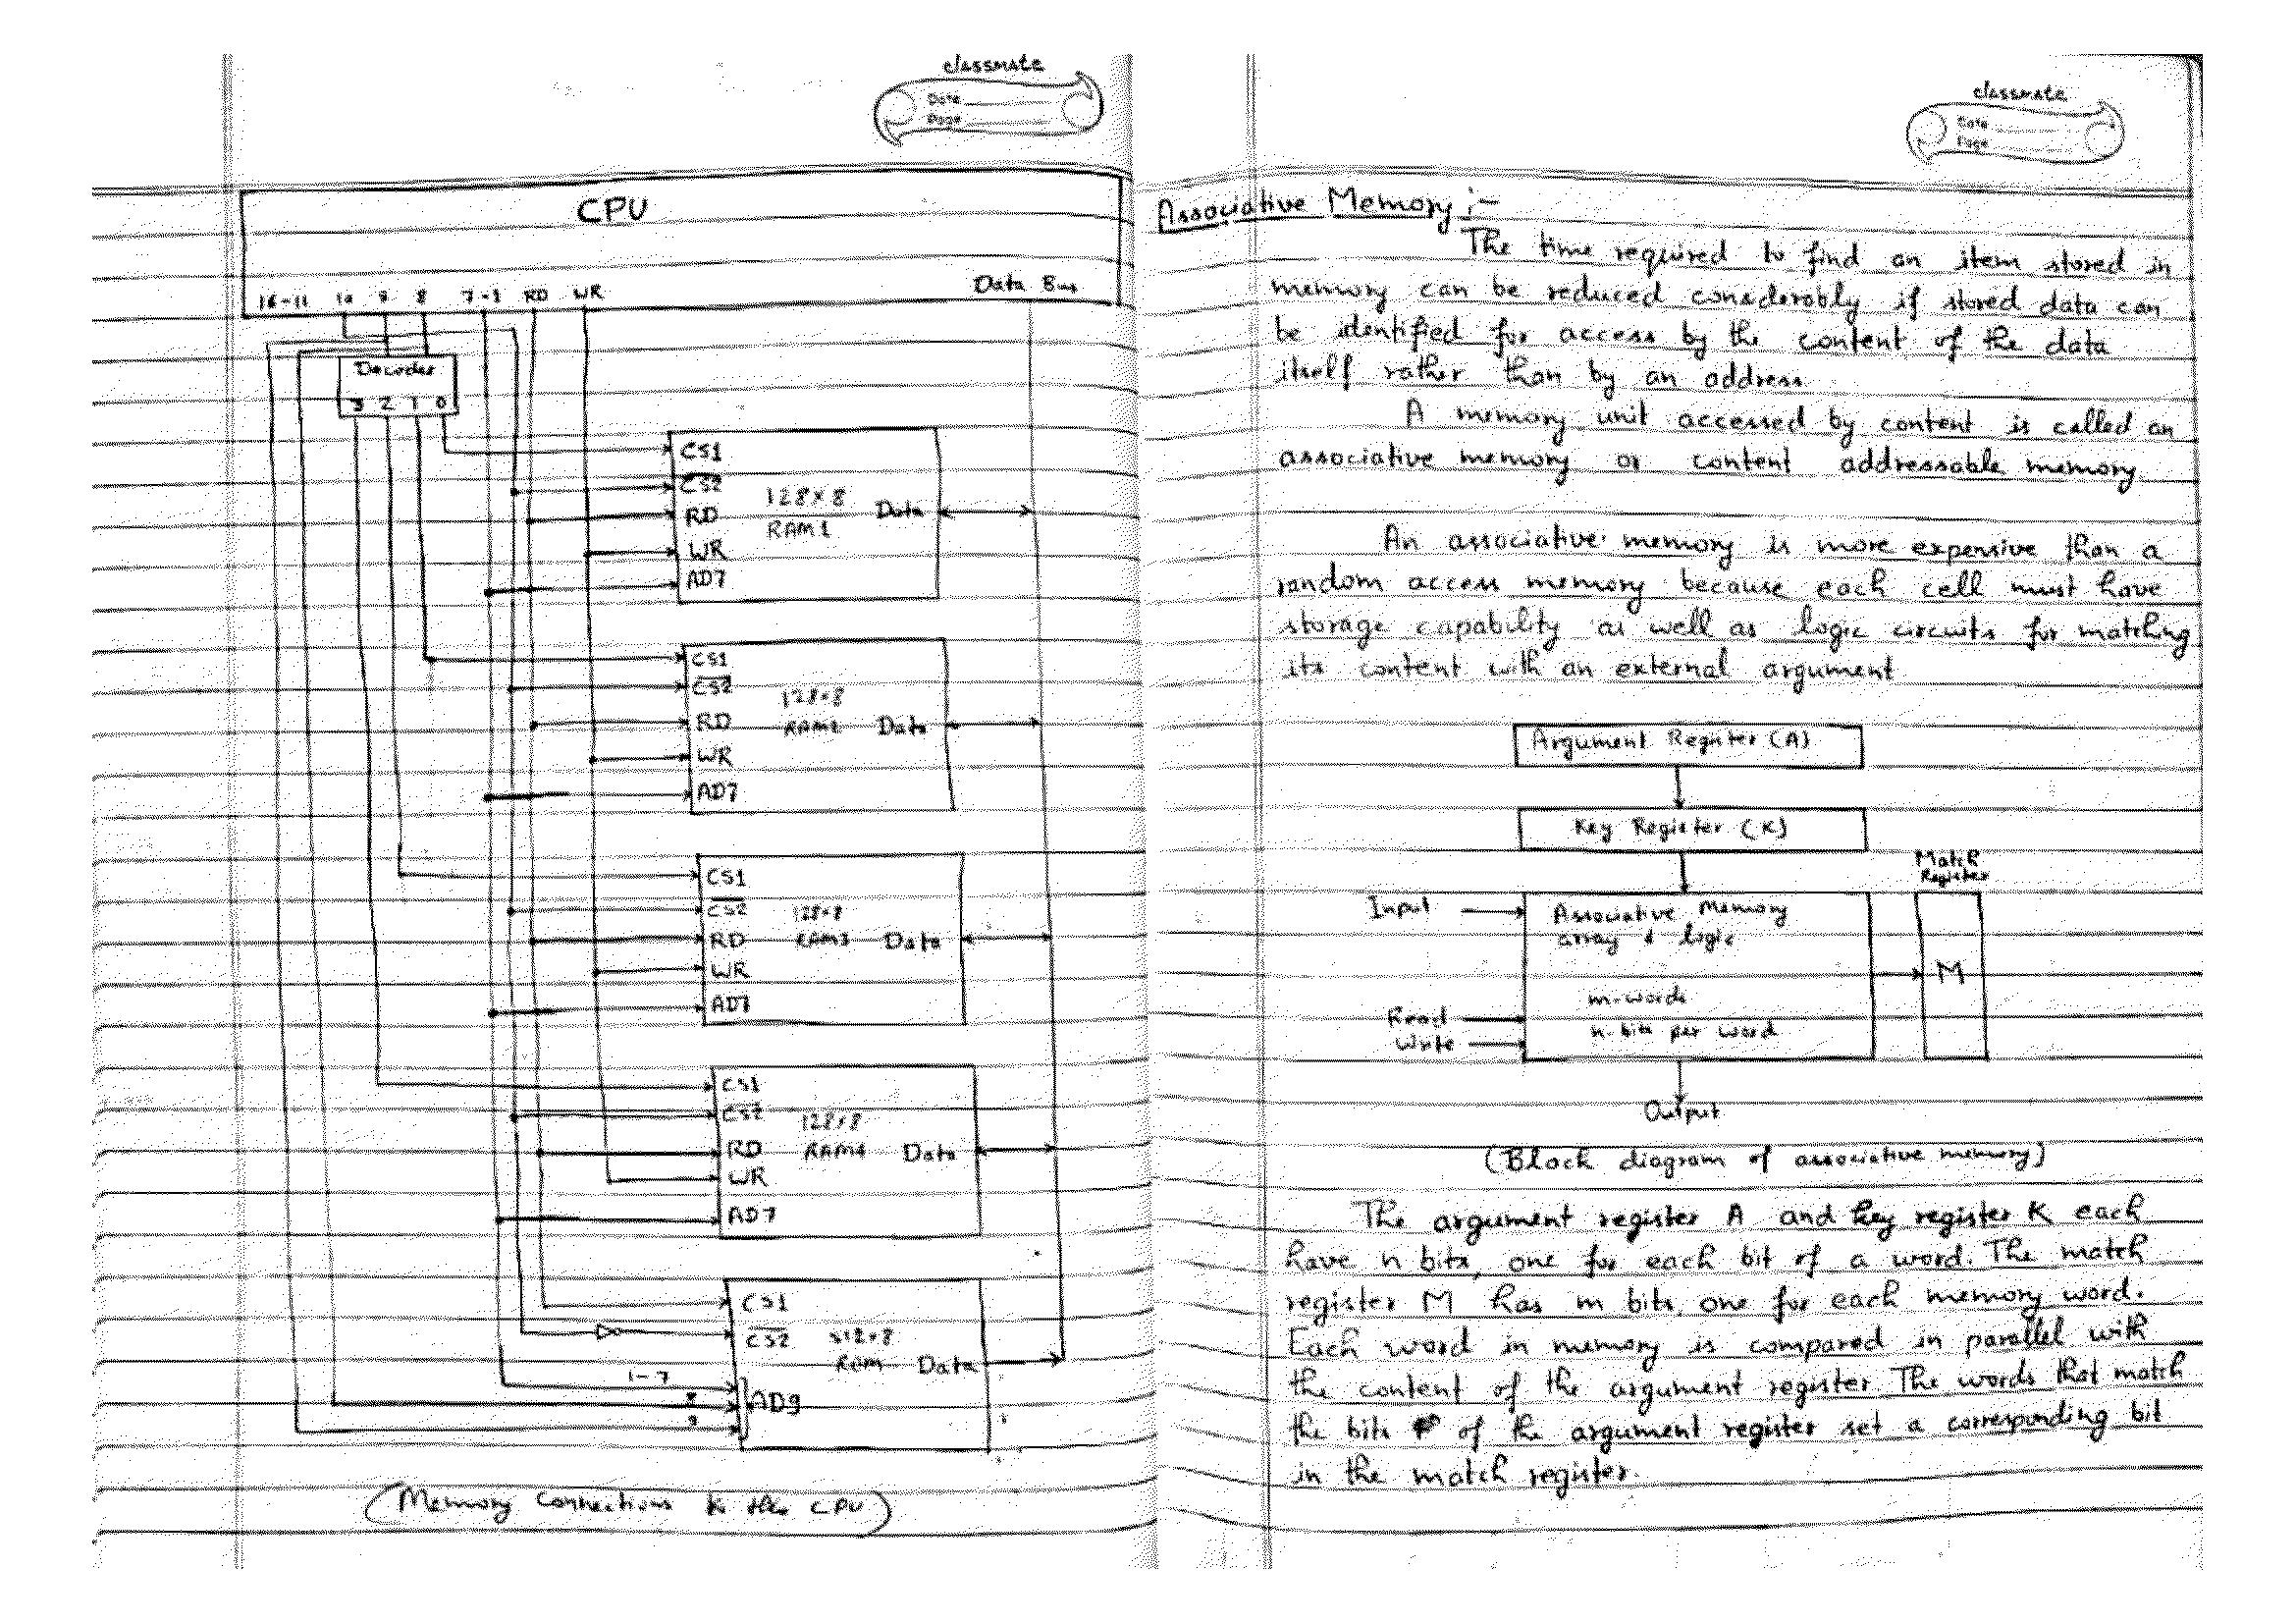 classmate
Date
Page
CPU
16-11 10 9 8 7-1 RD WR Data Bus
Decoder
3 2 1 0
CS1
CS2
RD
WR
AD7
128×8
RAM1
Data
CS1
CS2
RD
WR
AD7
128×8
RAM2
Data
CS1
CS2
RD
WR
AD7
128×8
RAM3
Data
CS1
CS2
RD
WR
AD7
128×8
RAM4
Data
CS1
CS2
512×8
ROM
Data
1-7
8
9
AD9
(Memory Connections to the CPU)
classmate
Date
Page
Associative Memory :-
The time required to find an item stored in
memory can be reduced considerably if stored data can
be identified for access by the content of the data
itself rather than by an address
A memory unit accessed by content is called an
associative memory or content addressable memory
An associative memory is more expensive than a
random access memory because each cell must have
storage capability as well as logic circuits for matching
its content with an external argument
Argument Register (A)
Key Register (K)
Match
Register
Input
Associative Memory
array & logic
M
m-words
n-bits per word
Read
Write
Output
(Block diagram of associative memory)
The argument register A and key register K each
have n bits, one for each bit of a word. The match
register M has m bits, one for each memory word.
Each word in memory is compared in parallel with
the content of the argument register The words that match
the bits of the argument register set a corresponding bit
in the match register.